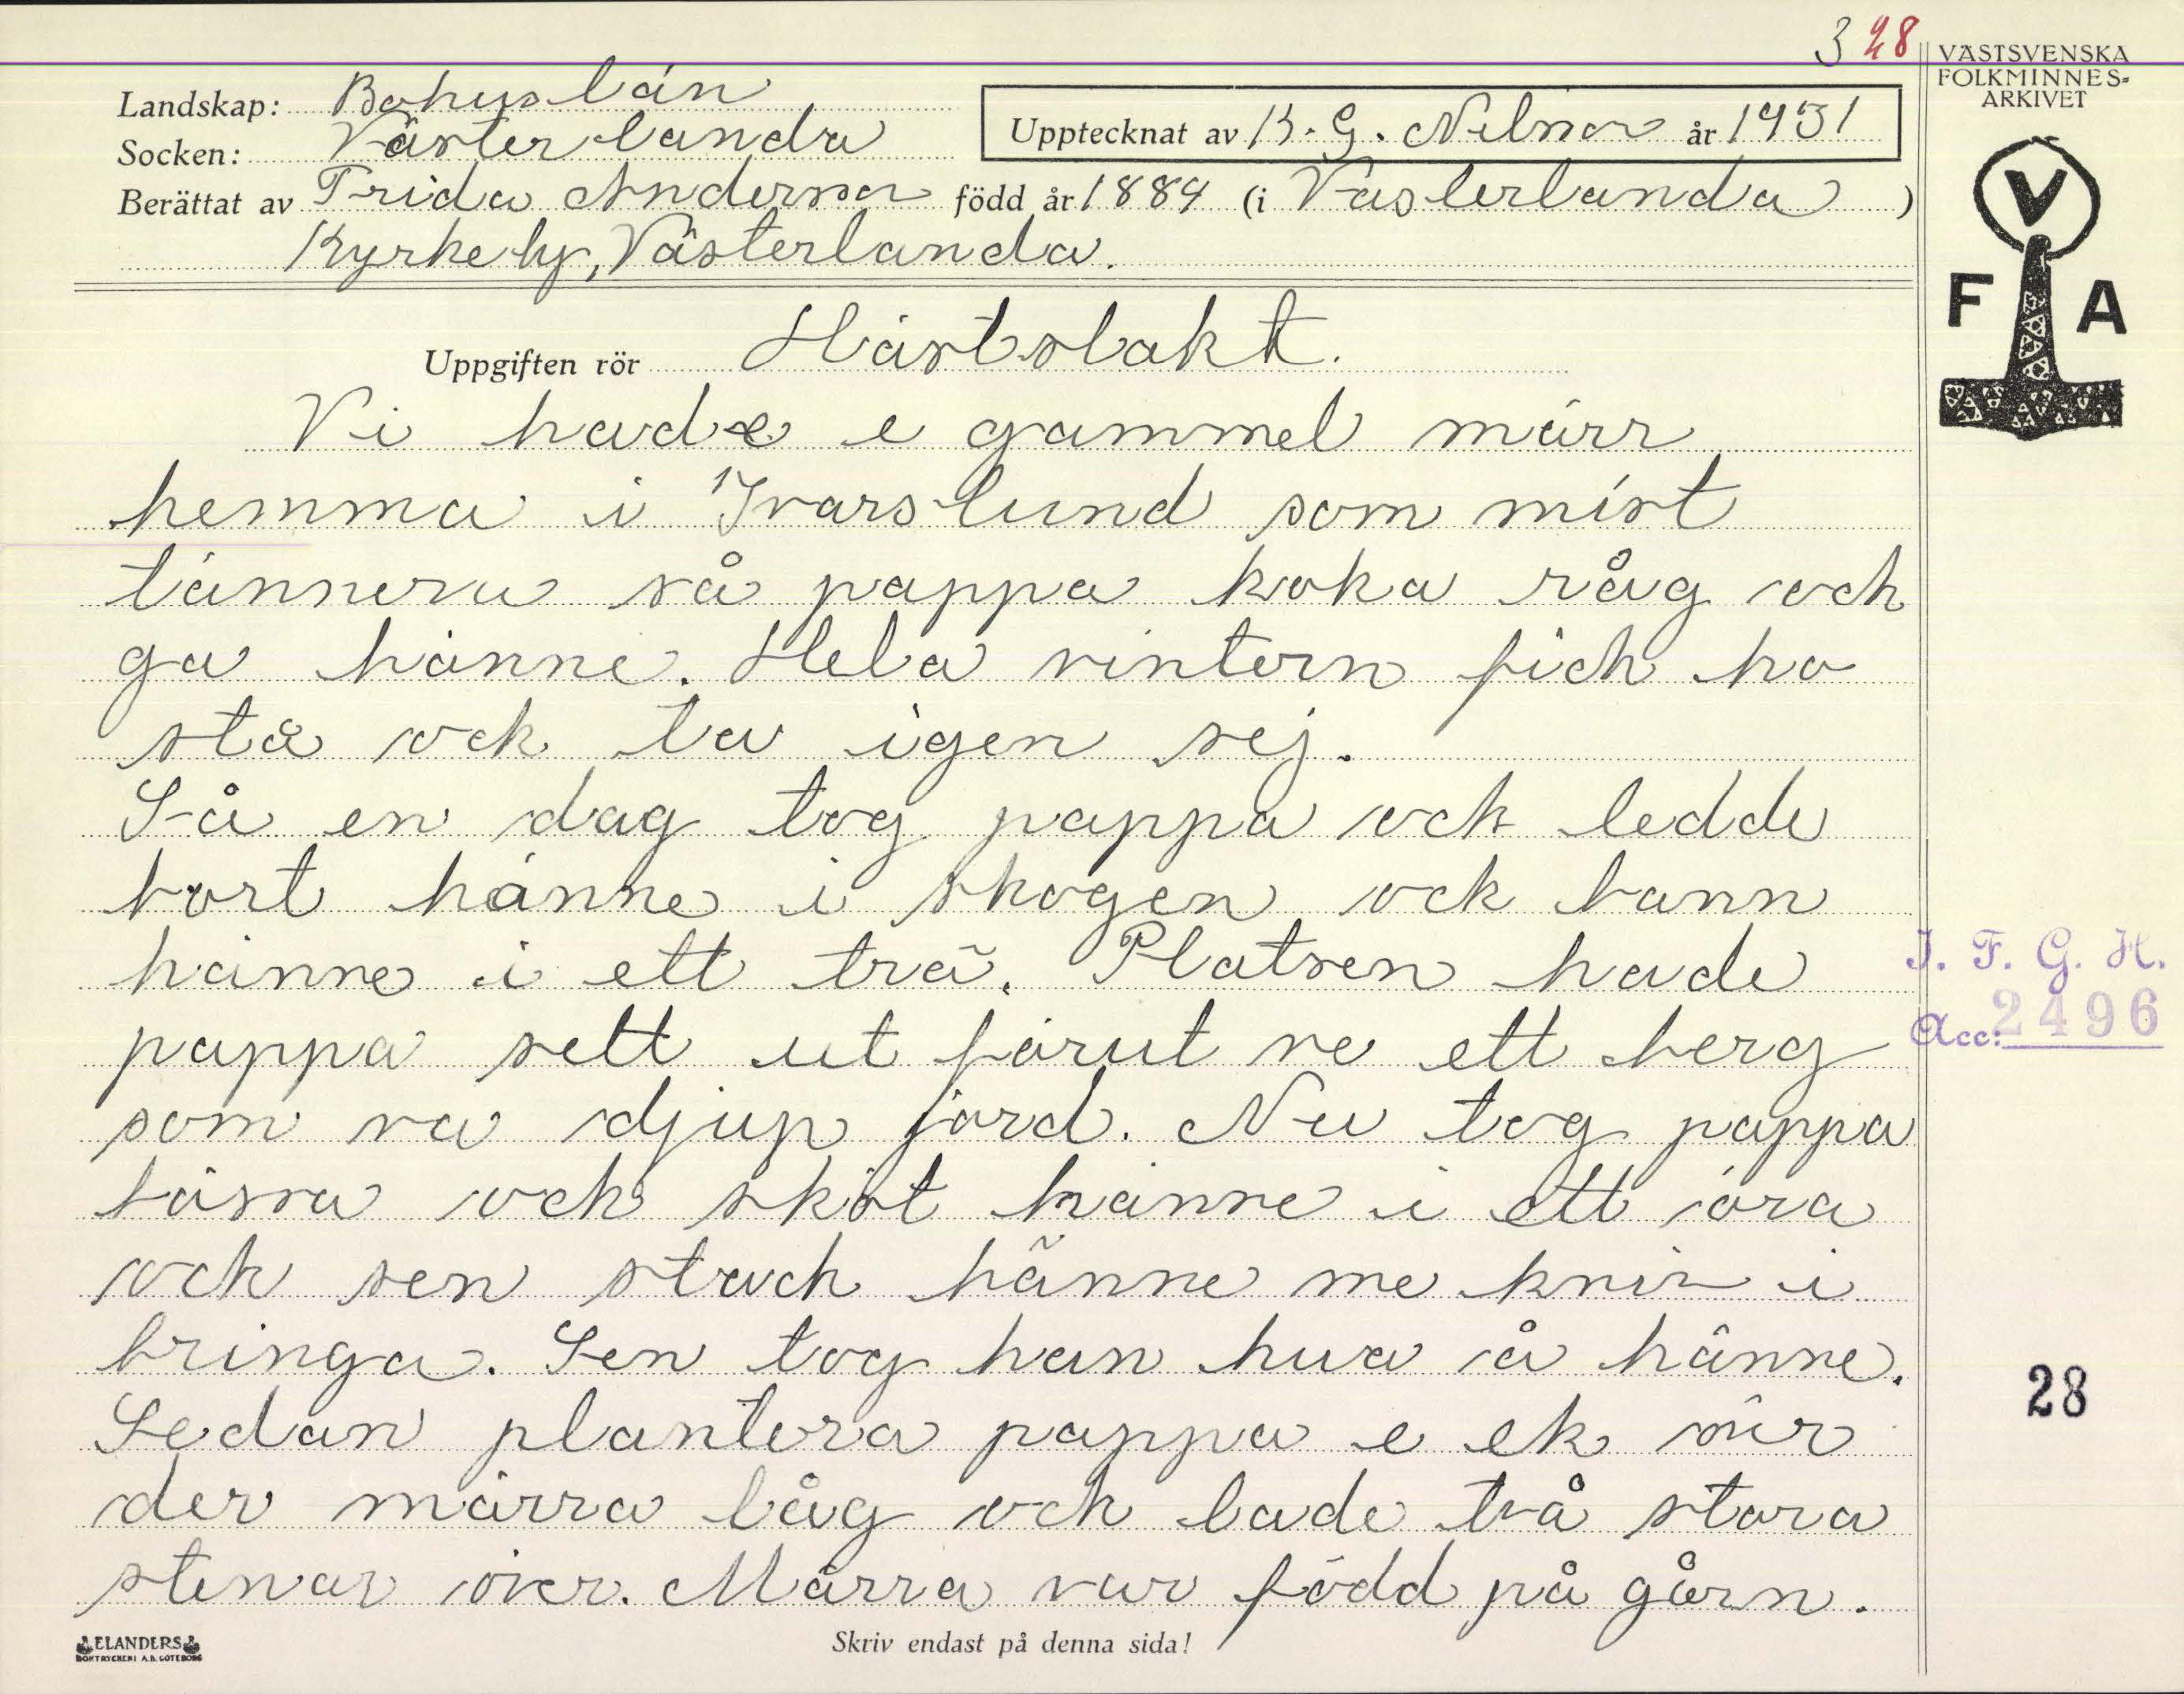 3 28
VÄSTSVENSKA
FOLKMINNES-
ARKIVET
Landskap: Bohuslän
Socken: Västerlanda
Upptecknat av K. G. Nilson år 1931
Berättat av Frida Anderson född år 1884 (i Västerlanda)
Kyrkeby, Västerlanda.
V
F A
Uppgiften rör Hästslakt.
Vi hade e gammel märr
hemma i Ivarslund som mist
tännera så pappa koka råg och
ga hänne. Hela vintern fick ho
stå ock ta igen sej.
Så en dag tog pappa ock ledde
bort hänne i skogen ock bann
hänne i ett trä. Platsen hade
pappa sett ut förut ve ett berg
som va djup jord. Nu tog pappa
bössa ock sköt hänne i ett öra
ock sen stack hänne me kniv i
bringa. Sen tog han hua å hänne.
Sedan plantera pappa e ek över
der märra låg och lade två stora
stenar över. Märra var född på gårn.
I. F. G. H.
Acc: 2496
28
ELANDERS
BOKTRYCKERI A.B. GÖTEBORG
Skriv endast på denna sida!